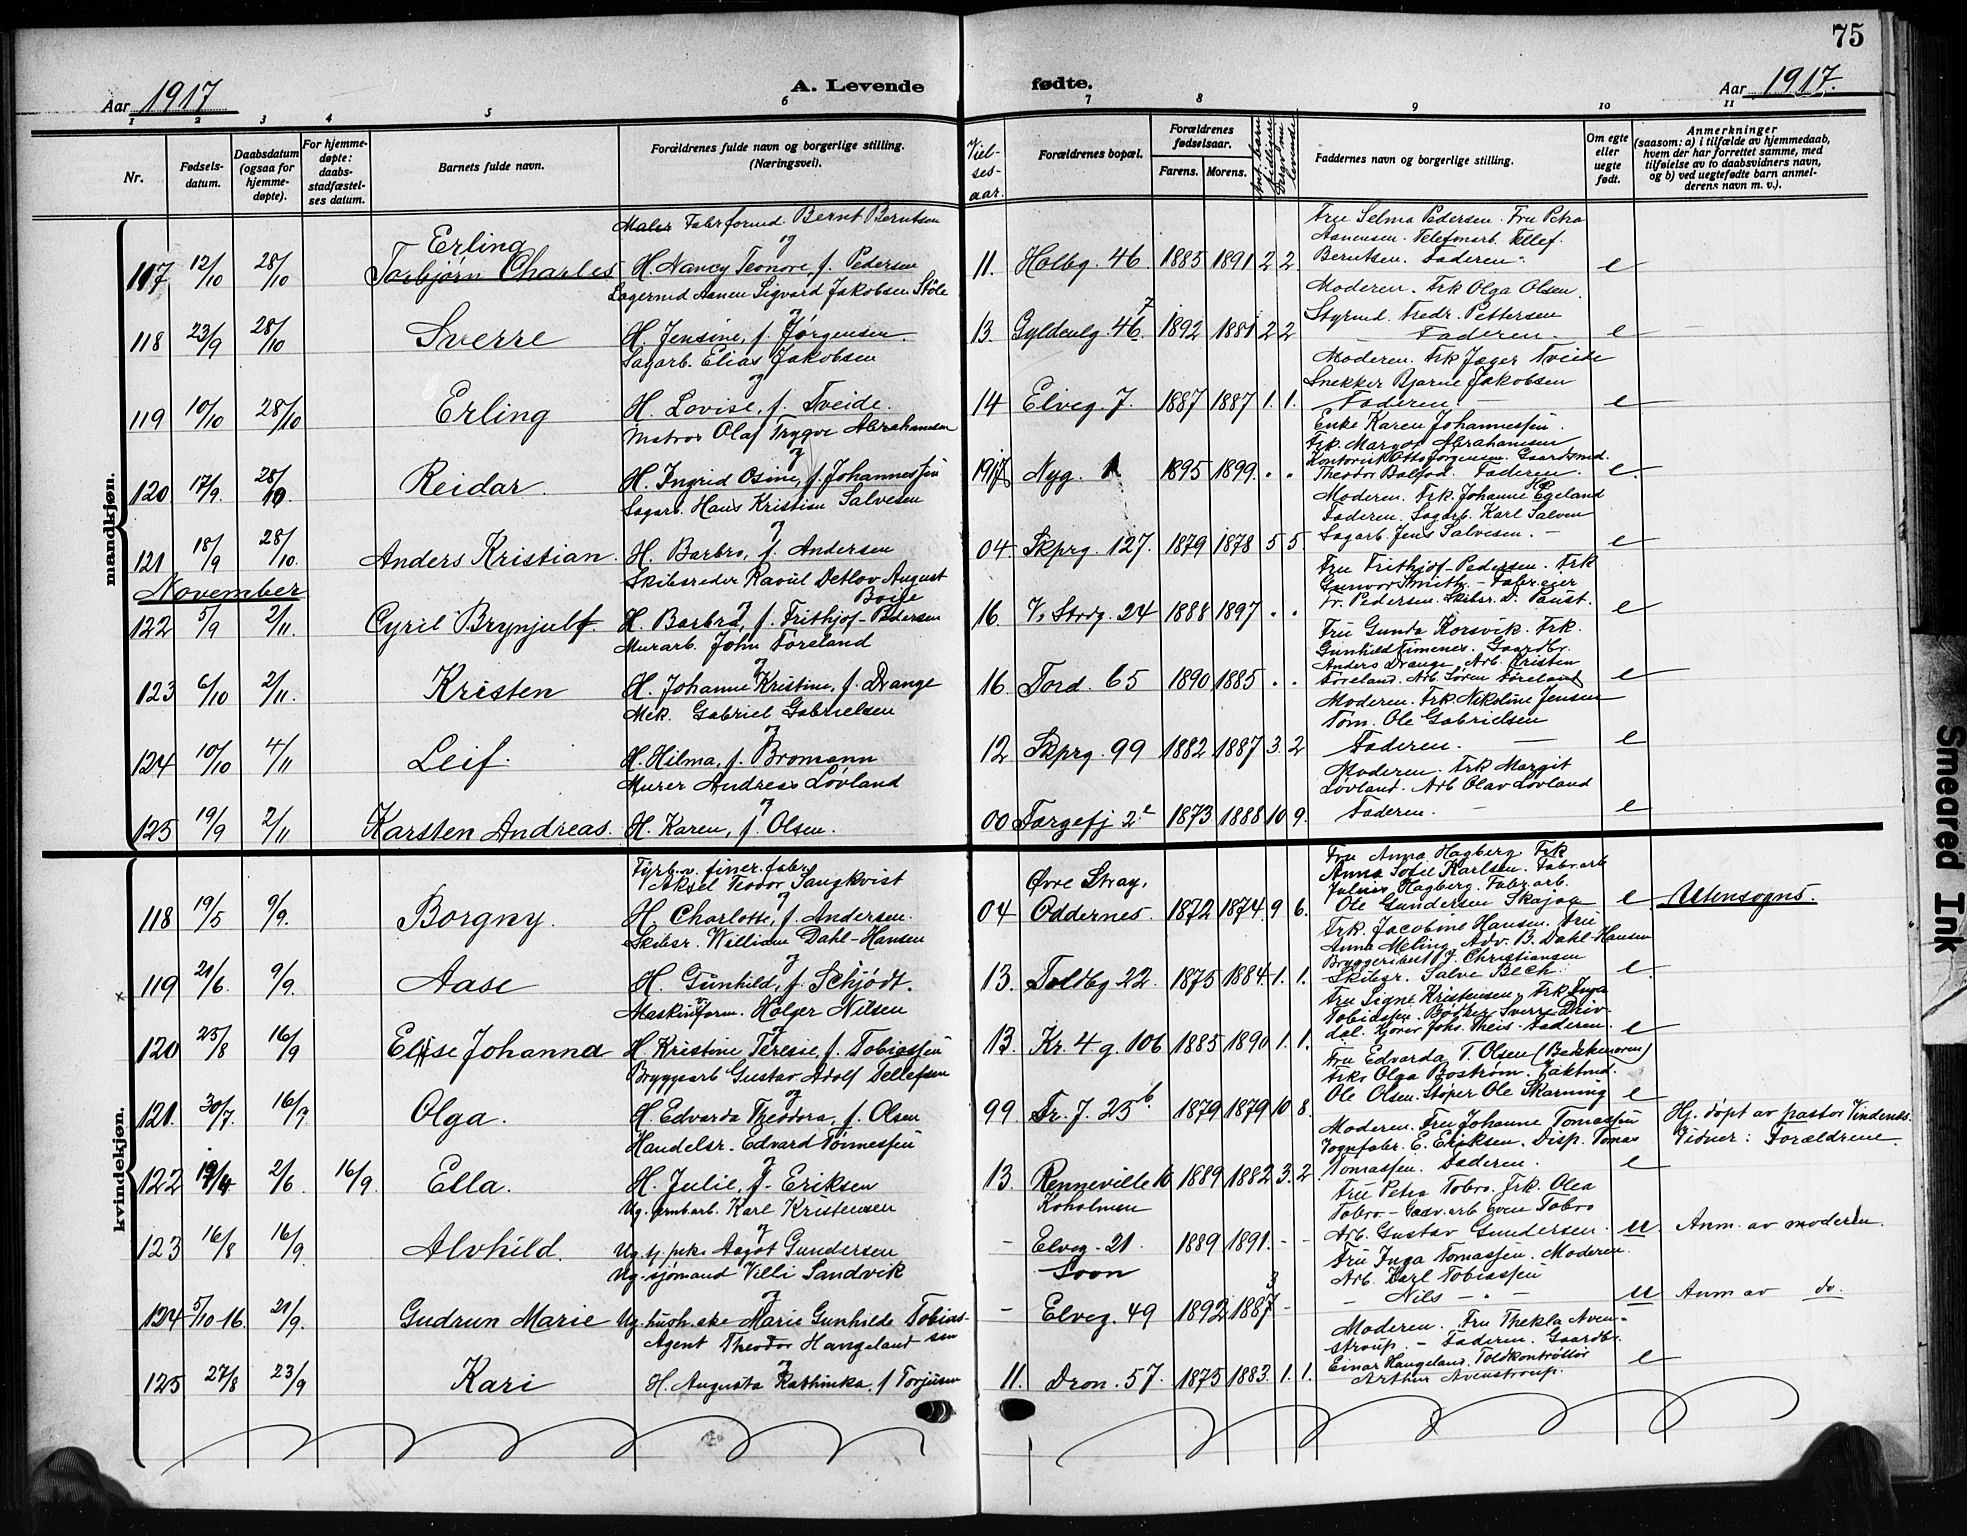 75
Aar 1917
A. Levende
fødte.
Aar 1917.
1 2 3 4 5 6 7 8 9 10 11
Nr.
Fødsels-
datum.
Daabsdatum
(ogsaa for
hjemme-
døpte).
For hjemme-
døpte:
daabs-
stadfæstel-
ses datum.
Barnets fulde navn.
Forældrenes fulde navn og borgerlige stilling.
(Næringsvei).
Viel-
ses-
aar.
Forældrenes bopæl.
Forældrenes
fødselsaar.
Farens. Morens.
Faddernes navn og borgerlige stilling.
Om egte
eller
uegte
født.
Anmerkninger
(saasom: a) i tilfælde av hjemmedaab,
hvem der har forrettet samme, med
tilføielse av to daabsvidners navn,
og b) ved uegtefødte barn anmel-
derens navn m. v.).
mandkjøn.
Maler Fabrformd. Bernt Berntsen
og
117 12/10 28/10 Erling
Torbjørn Charles H. Nancy Teonore, f. Pedersen
11. Holbg. 46. 1885 1891 2 2
Fru Selma Pedersen. Fru Petra
Aanensen. Telefonarb. Tellef.
Berntsen. Faderen. e
Lagermd Aanen Sigvard Jakobsen Støle
og
118 23/9 28/10 Sverre H. Jensine, f. Jørgensen.
13. Gyldenlg. 46 7 1892 1881 2 2
Moderen. Frk Olga Olsen.
Styrmd. Fredr. Pettersen
Faderen. e
Sagarb. Elias Jakobsen
og
119 10/10 28/10 Erling H. Lovise, f. Tveide.
14 Elveg. 7. 1887 1887 1. 1.
Moderen. Frk Jæger Tveide
Snekker Bjarne Jakobsen
Faderen. e
Matros Olaf Trygve Abrahamsen
og
120 17/9 28/10 Reidar. H. Ingrid Osine, f. Johannessen
1917 Nyg. 1895 1899. . .
Enke Karen Johannessen.
Frk. Margot Abrahamsen
Kontorist Otto Jørgensen. Gaardsmd.
Theodor Faderen. e.
Sagarb. Hans Kristian Salvesen
og
121 18/9 28/10. Anders Kristian. H. Barbro, f. Andersen
04. Skprg. 127. 1879 1878 5 5
Moderen. Frk. Johanne Egeland
Faderen. Sagarb. Karl Salven
Sagarb. Jens Salvesen. e
November
Skibsreder Ravül Detlov August
Boije
og
122 5/9 2/11. Cyril Brynjulf. H. Barbra, f. Frithjof-Pedersen
16. V. Strdg. 24 1888 1897 . .
Fru Frithjof-Pedersen. Frk
Gunvor Smith. - Fabreier
Fr. Pedersen. Skibsr. D. Paust. e
Murarb. John Føreland
og
123 6/10 2/11. Kristen H. Johanne Kristine, f. Drange
16. Tord. 65 1890 1885. . .
Fru Gunda Korsvik. Frk.
Gunhild Gaardbr.
Anders Drange. Arb. Kristen
Føreland. Arb Søren Føreland e
Mek. Gabriel Gabrielsen
og
124 10/10 4/11 Leif. H. Hilma, f. Bromann
12 Skprg. 99 1882 1887 3. 2
Moderen. Frk. Nikoline Jensen
Tøm. Ole Gabrielsen
Faderen. e
Murer Andreas Løvland
og
125 19/9 2/11 Karsten Andreas. H. Karen, f. Olsen.
00 Torgefj 2 1873 1888 10 9.
Moderen. Frk Margit
Løvland. Arb Olav Løvland
Faderen. e
kvindekjøn.
Fyrb. v. finer. fabr.
Aksel Teodor Sangkvist
og
118 19/5 9/9. Borgny. H. Charlotte, f. Andersen.
04 Øvre Stray,
Oddernes. 1872 1874. 9 6.
Fru Anna Hagberg. Frk
Anna Sofie Karlsen. Fabr.arb
Julius Hagberg. Fabr. arb.
Ole Gundersen Skajaa e Utensogns.
Skibsr. William Dahl-Hansen
og
119 21/6. 9/9. Aase H. Gunhild, f. Schjødt.
13. Toldbg 22. 1875 1884 1. 1.
Frk. Jacobine Hansen. Fru
Anna Meling. Adv. B. Dahl-Hansen
Bryggeribest J. Christiansen
Skibsr. Salve Bech. e.
Maskinform. Holger Nilsen
og
120 25/8 16/9 Elise Johanna H. Kristine Teresie f. Tobiassen
13. Kr. 4 g. 106 1885 1890 1. 1.
Fru Signe Kristensen. Frk Inga
Tobiassen. Bøtker Sverre Driv-
dal. Johs. Theis. Faderen. e
Bryggearb Gustav Adolf Tellefsen
og
121. 30/7. 16/9 Olga. H Edvarda Theodora, f. Olsen
99 Tr. J. 25 b. 1879 1879 10 8.
Fru Edvarda T. Olsen (Bedstemoren)
Frk. Olga Bostrøm. Jaktmd.
Ole Olsen. Støper Ole Skarning e
Handelsr. Edvard Tønnessen
og
122 19/4 2/6 16/9 Ella. H. Julie, f. Eriksen
13. Renneville 16 1889 1882 3. 2
Koholmen
Moderen. Fru Johanne Tomassen
Vognfabr. E. Eriksen. Disp. Tomas
Tomassen. Faderen. e
Hj. døpt av pastor Vindenes.
Vidner: Forældrene
Ug. jernb.arb. Karl Kristensen
og
123 16/8 16/9. Alvhild. Ug. tj. pike Aagot Gundersen
- Elveg. 21. 1889 1891. - -
Fru Petra Tobro. Frk. Olea
Tobro - Gasv. arb Even Tobro
Arb. Gustav Gundersen. u. Anm. av moderen.
Ug. sjømand Villi Sandvik
og
124 5/10 16. 21/9. Gudrun Marie Ug. hush. ske Marie Gunhilde Tobias-
sen
Soon
- Elveg. 49 1892 1887 -
Fru Inga Tomassen. Moderen.
Arb. Karl Tobiassen
- Nils - " - u Anm av do.
Agent Theodor Haugeland
og
125 27/8 23/9 Kari H. Augusta Kathinka, f Torjusen
11. Dron. 57. 1875 1883. 1. 1.
Moderen. Fru Thekla Aven-
strup. - Faderen. Gaardbr.
Einar Haugeland. Toldkontrollør
Arthur Avenstroup. e
Smeared Ink